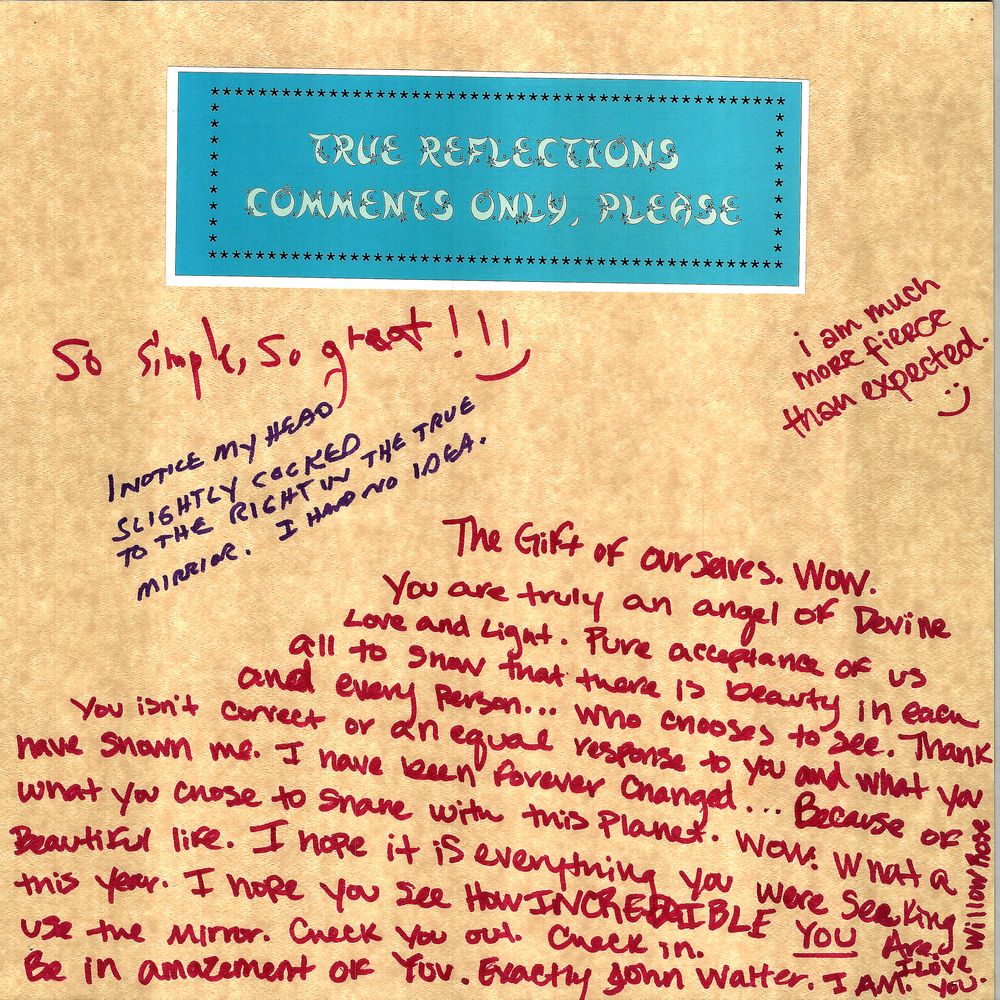 TRUE REFLECTIONS
COMMENTS ONLY, PLEASE
So simple, so great!!
i am much
more fierce
than expected.
I NOTICE MY HEAD
SLIGHTLY COCKED
TO THE RIGHT IN THE TRUE
MIRRIOR. I HAD NO IDEA.
The Gift of ourselves. Wow.
You are truly an angel of Devine
Love and Light. Pure acceptance of us
all to show that there is beauty in each
and every person... who chooses to see. Thank
You isn't correct or an equal response to you and what you
have shown me. I have been forever changed... Because of
what you chose to share with this Planet. Wow. What a
Beautiful life. I hope it is everything you were seeking
this year. I hope you see How INCREDIBLE YOU Are.
use the Mirror. Check you out. Check in.
Be in amazement of You. Exactly John Walter. I AM.
I Love
you.
Willow Rose